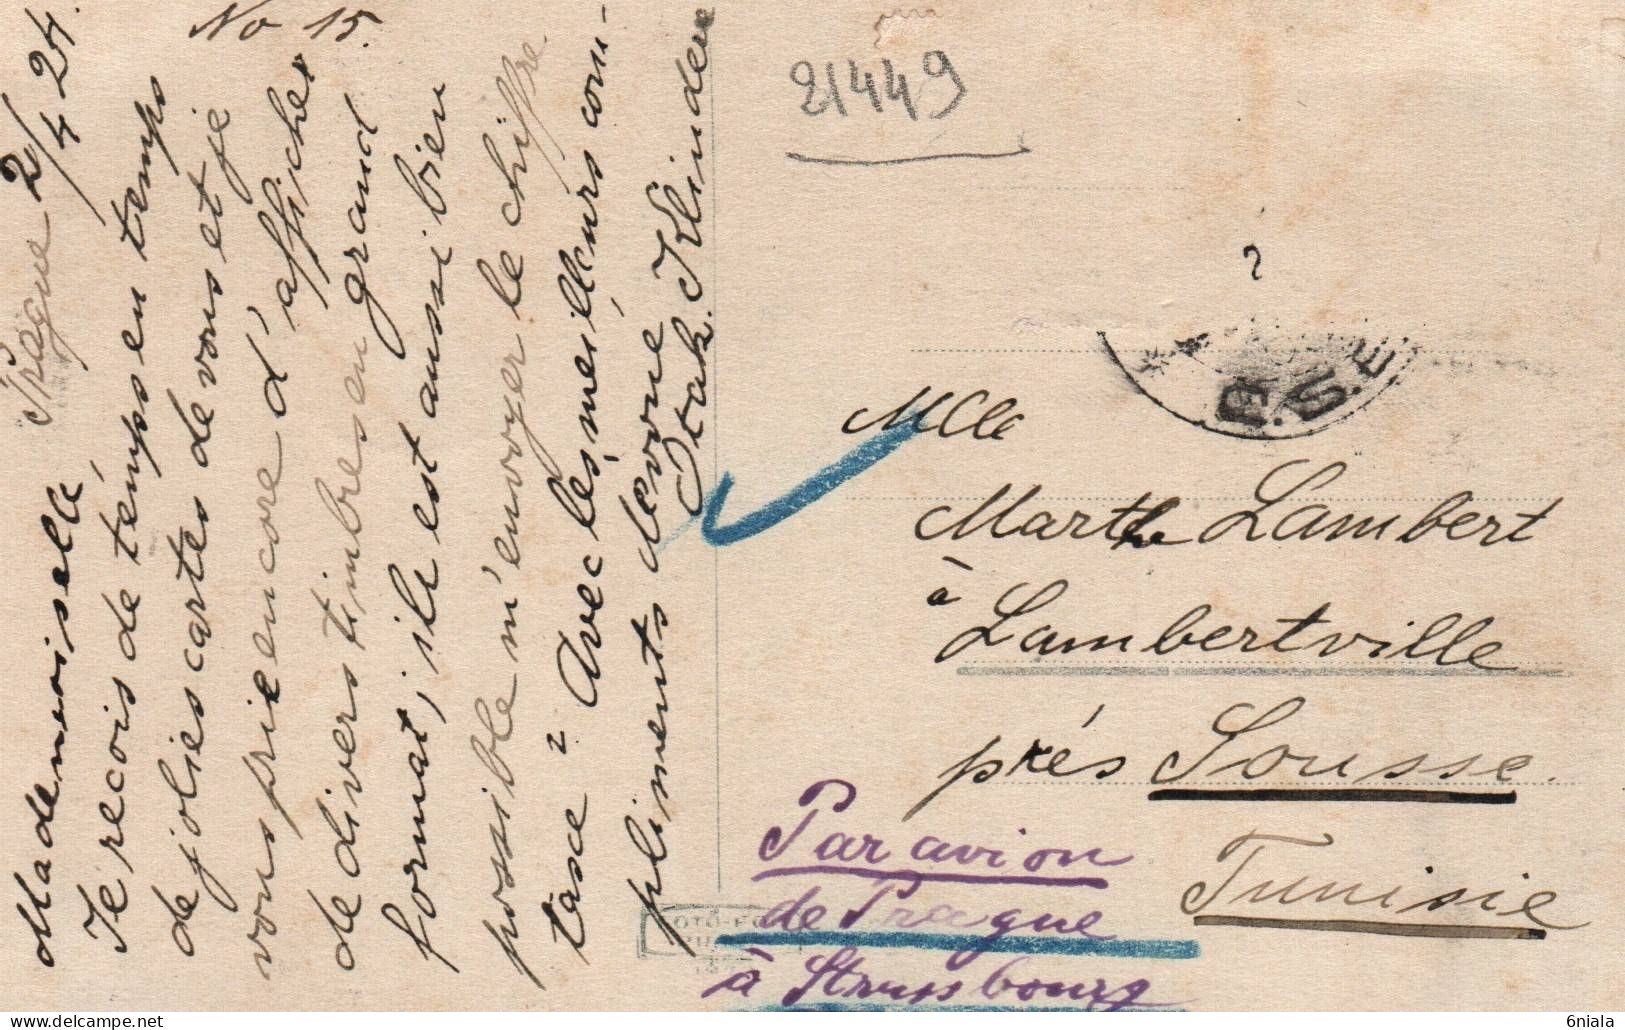 No 15.
Prague 2/4 24.
Mademoiselle
Je reçois de temps en temps
de jolies cartes de vous et je
vous prie encore d'afficher
de divers timbres en grand
format, s'il est aussi bien
possible m'envoyer le chiffre
tasce 2 Avec les meilleurs com-
pliments
21449
?
Mlle
Marthe Lambert
à
Lambertville
prés Sousse.
Tunisie
Par avion
de Prague
à Strasbourg
delcampe.net
6niala